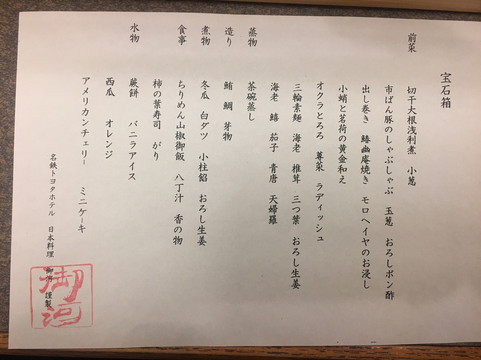 宝石箱
前菜
切干大根浅利煮　小葱
市ばん豚のしゃぶしゃぶ　玉葱　おろしポン酢
出し巻き　鰆幽庵焼き　モロヘイヤのお浸し
小蛸と茗荷の黄金和え
オクラとろろ　蓴菜　ラディッシュ
三輪素麺　海老　椎茸　三つ葉　おろし生姜
海老　鱚　茄子　青唐　天婦羅
蒸物　茶碗蒸し
造り　鮪　鯛　芽物
煮物　冬瓜　白ダツ　小柱餡　おろし生姜
食事　ちりめん山椒御飯　八丁汁　香の物
柿の葉寿司　がり
水物　蕨餅　バニラアイス
西瓜　オレンジ
アメリカンチェリー　ミニケーキ
名鉄トヨタホテル　日本料理　御河　謹製
御河